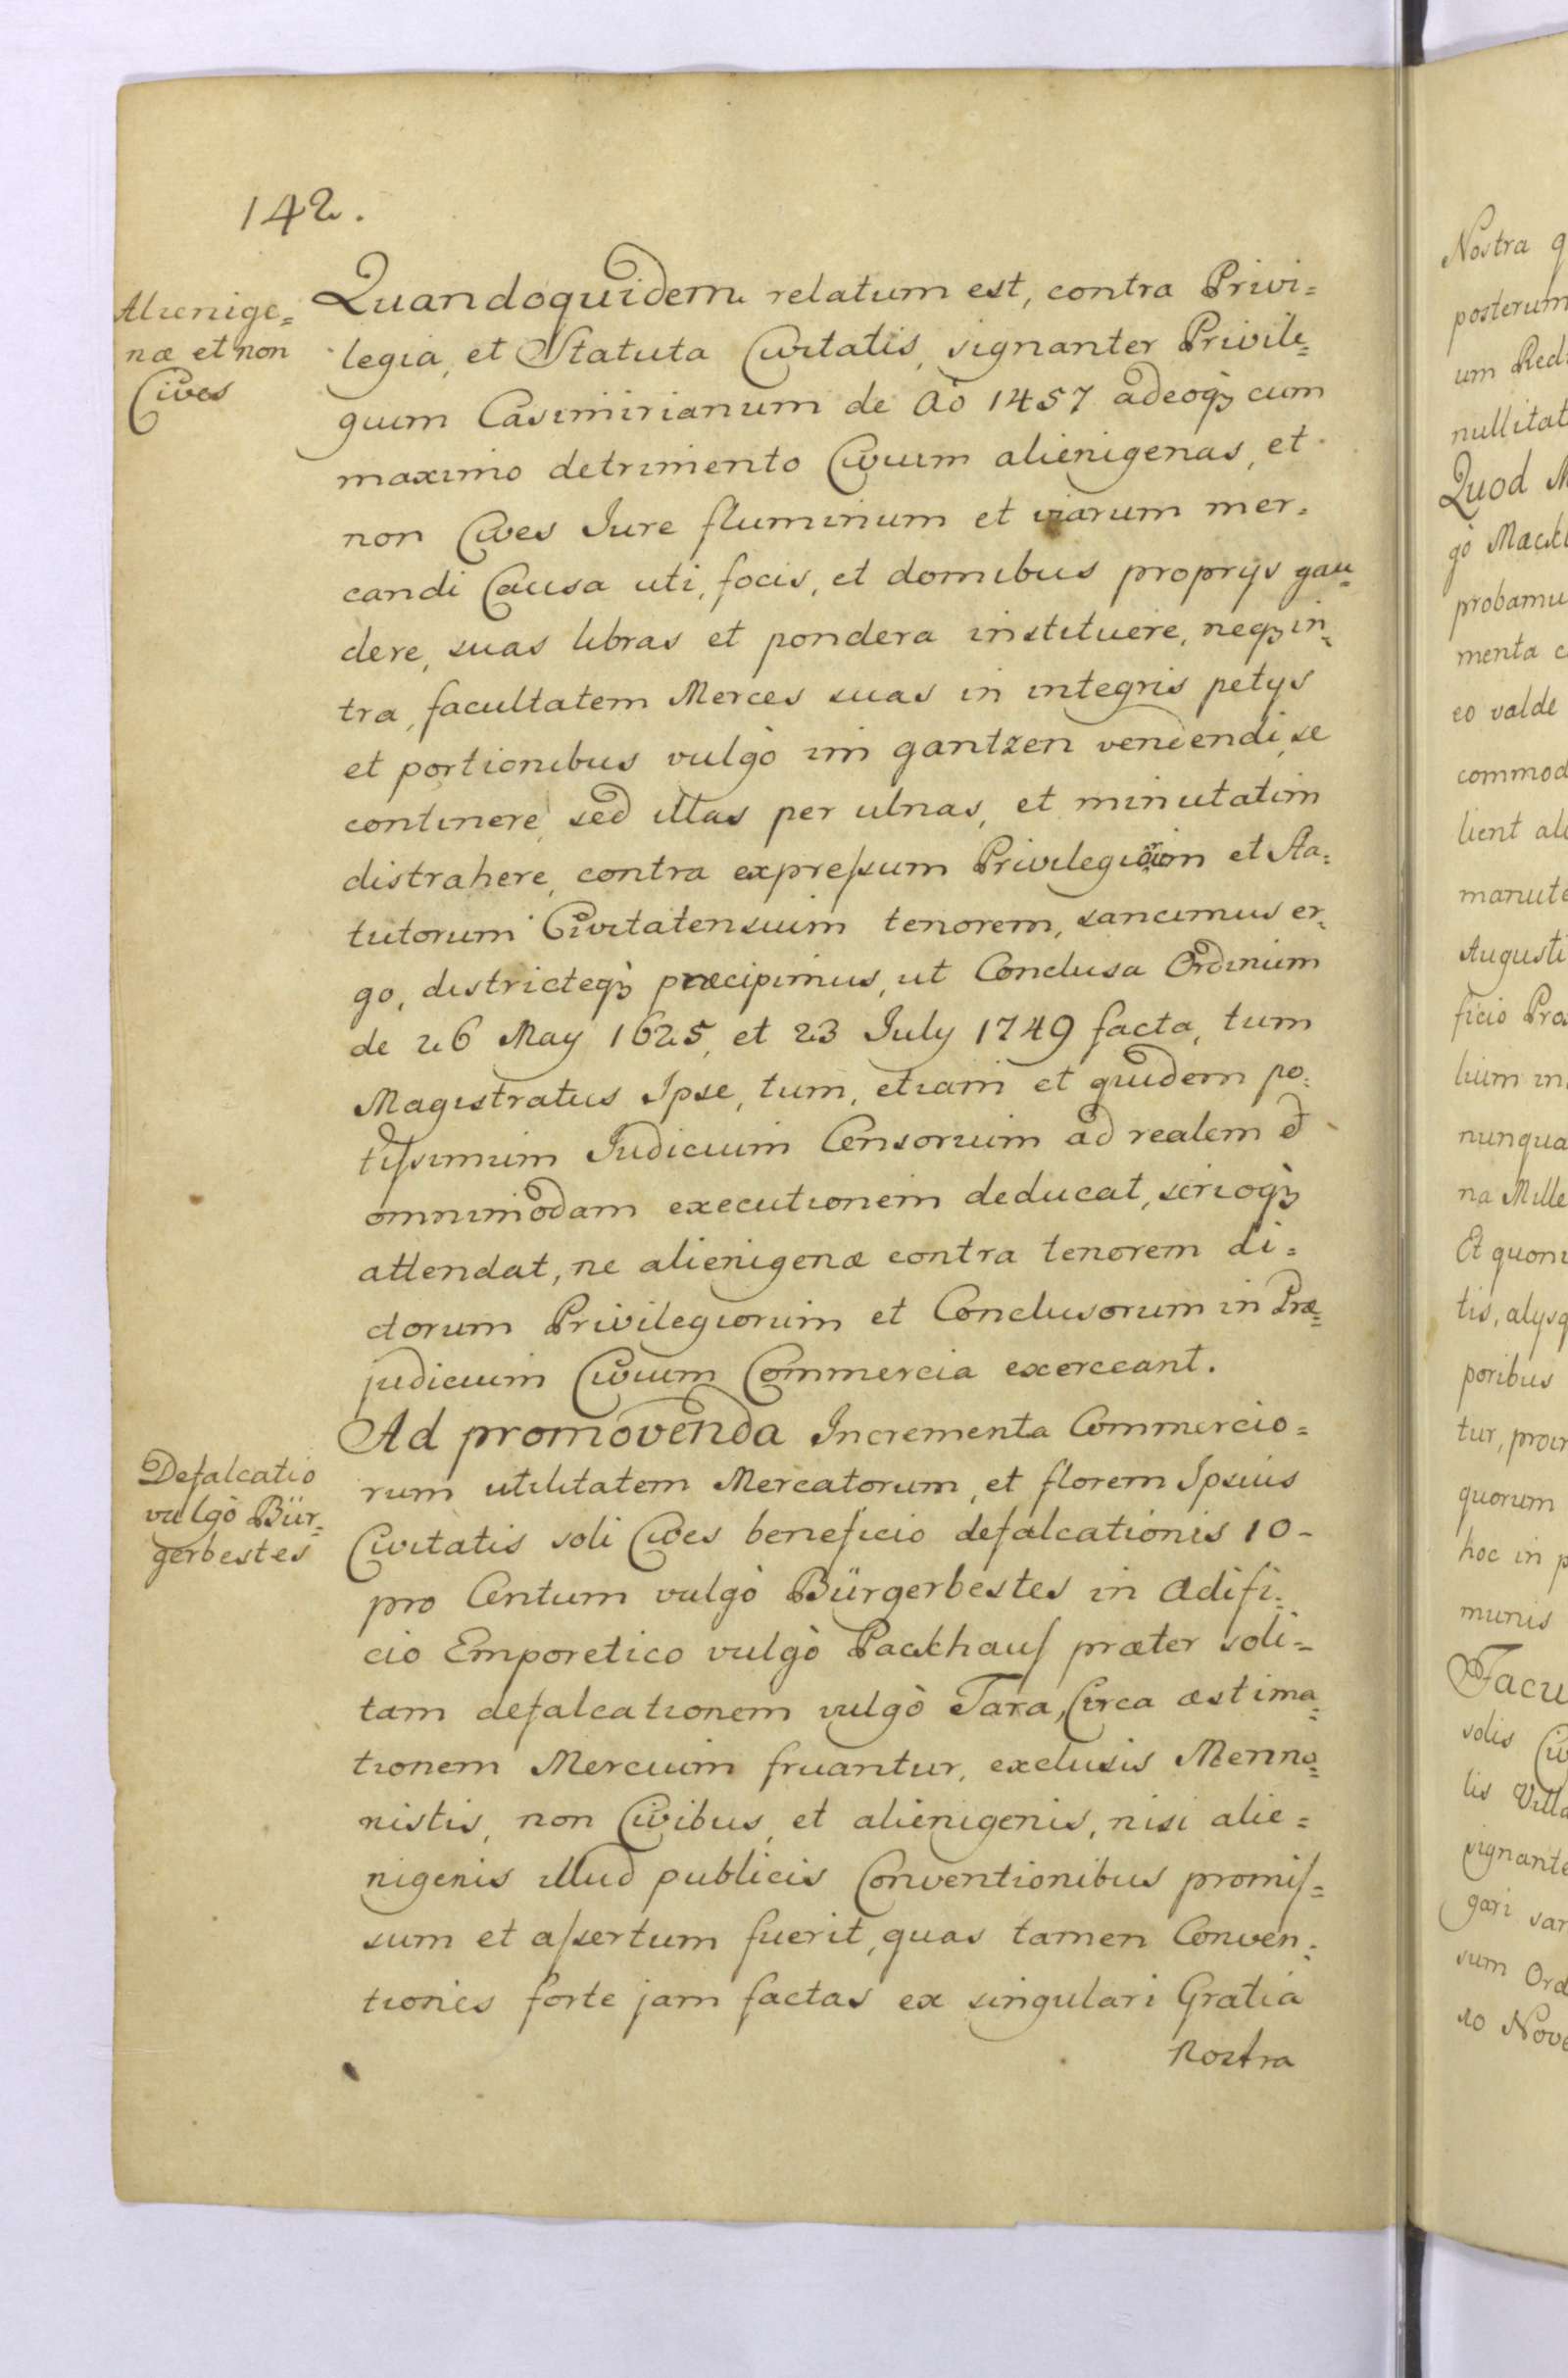 142.
Alienige=
næ et non
Cives
Quandoquidem relatum est, contra Privi=
legia, et Statuta Civitatis, signanter Privile=
gium Casimirianum de Aò 1457 adeoqꝫ cum
maximo detrimento Civium alienigenas, et
non Cives Jure fluminum et viarum mer=
candi Causa uti, focis, et domibus proprijs gau=
dere, suas libras et pondera instituere, neqꝫ in=
tra, facultatem Merces suas in integris petijs
et portionibus vulgò im gantzen vendendi, se
continere, sed illas per ulnas, et minutatim
distrahere, contra expreſsum Privilegiorum et Sta=
tutorum Civitatensium tenorem, sancimus er=
go, districteqꝫ præcipimus, ut Conclusa Ordinum
de 26 May 1625, et 23 July 1749 facta, tum
Magistratus Ipse, tum, etiam et quidem po=
tiſsimum Judicium Censorium ad realem et
omnimodam executionem deducat, serioqꝫ
attendat, ne alienigenæ contra tenorem di=
ctorum Privilegiorum et Conclusorum in Præ=
judicium Civium Commercia exerceant.
Defalcatio
vulgò Bür=
gerbestes
Ad promovenda Incrementa Commercio=
rum utilitatem Mercatorum, et florem Ipsius
Civitatis soli Cives beneficio defalcationis 10-
pro Centum vulgò Bürgerbestes in Ædifi=
cio Emporetico vulgò Packhauſ præter soli=
tam defalcationem vulgò Tara, Circa æstima=
tionem Mercium fruantur, exclusis Menno=
nistis, non Civibus, et alienigenis, nisi alie=
nigenis illud publicis Conventionibus promiſ=
sum et aſsertum fuerit, quas tamen Conven=
tiones forte jam factas ex singulari Gratia
Nostra
Nostra
posterum
um
nullitat
Quod
gò
probamu
menta c
eo valde
commod
lient
Augusti
ficio
lium in
nunqua
na Mille
Et quon
tis, alijsq
poribus
tur,
quorum
hoc in p
munis
Facu
solis
lis Villa
signante
gari
sum Ord
10 Nove